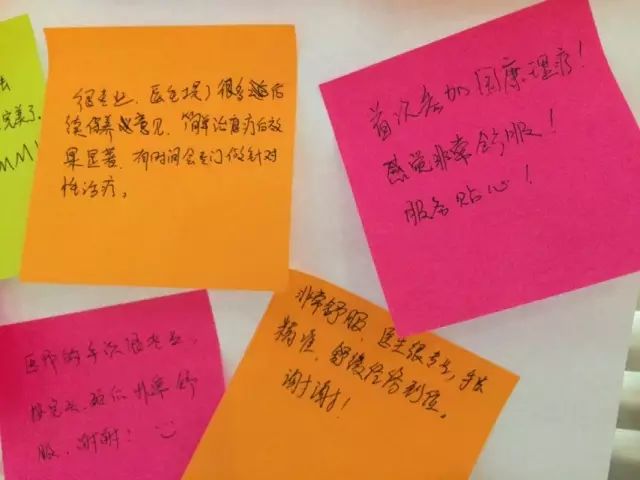 去
完美了
MM!
很专业，医生提了很多后
续保养意见，简单治疗后效
果显著，有时间会专门做针对
性治疗。
首次参加国康理疗！
感觉非常舒服！
服务贴心！
非常舒服，医生很专业，手法
精准，舒缓经络到位。
谢谢！
医师的手法很专业，
按完头、颈后非常舒
服，谢谢！